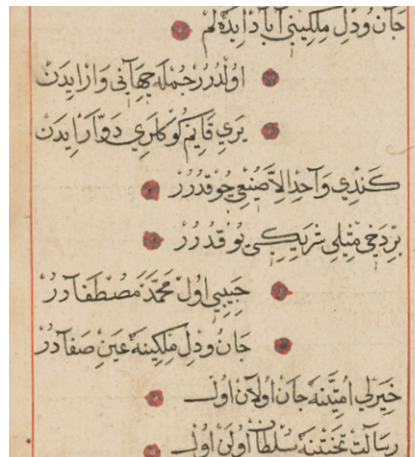 جان و دل ملكيني آباد ايده لم
اولدرر جمله جهاني وار ايدن
يري قايم كوكلري دوار ايدن
كندي واحد الا صنعي چوقدرر
بر دخي مثلي شريكي يوقدرر
حبيبي اول محمد مصطفادر
جان و دل ملكينه عين صفادر
خيرلي امتنه جان اولان اول
رسالت تختنه سلطان اولن اول